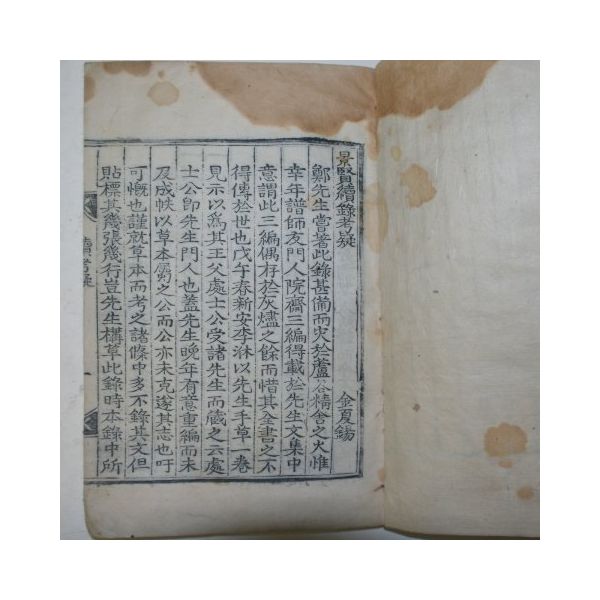 景賢續錄考疑
金夏錫
鄭先生嘗著此錄甚備而火於蘆谷精舍之火惟
幸年譜師友門人院齋三編得載於先生文集中
意謂此三編偶存於灰燼之餘而惜其全書之不
得傳於世也戊午春新安李淋以先生手草一卷
見示以爲其王父處士公受諸先生而藏之云處
士公卽先生門人也蓋先生晩年有意重編而未
及成帙以草本蜀之公而公亦未克遂其志也吁
可慨也謹就草本而考之諸條中多不錄其文但
貼標其幾張幾行豈先生構草此錄時本錄中所
續考疑